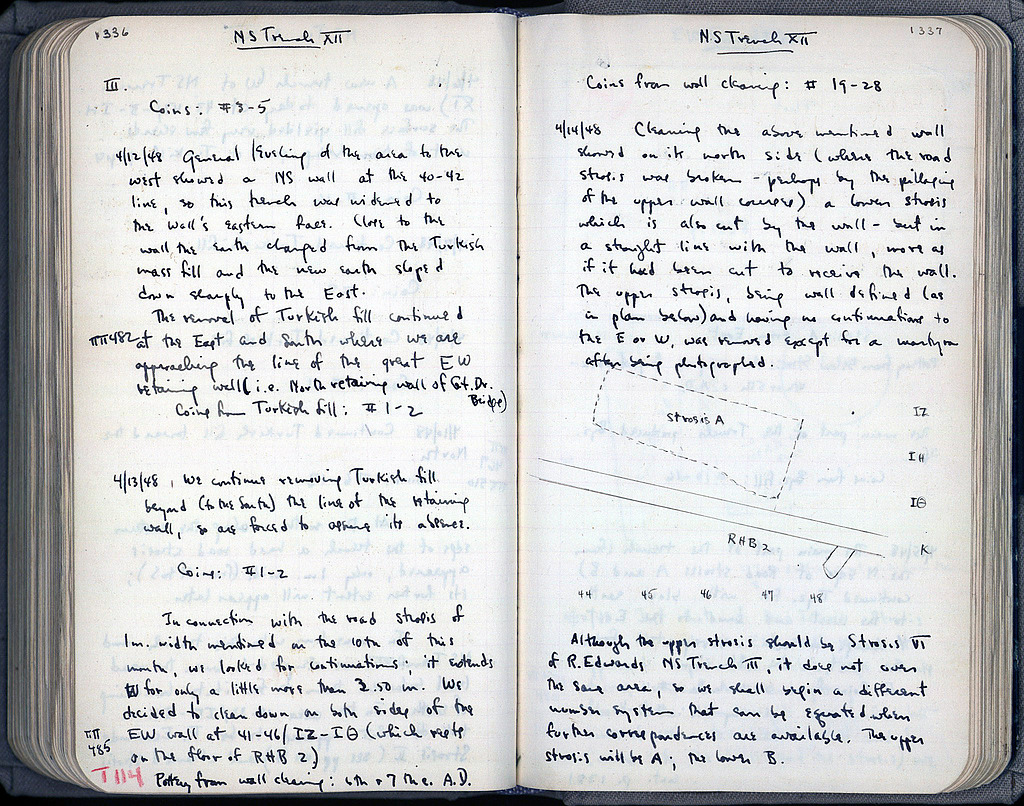 1336
NS Trench XII
III.
Coins: #3-5
4/12/48 General leveling of the area to the
west showed a NS wall at the 40-42
line, so this trench was widened to
the wall's eastern face. Close to the
wall the earth changed from the Turkish
mass fill and the new earth sloped
down sharply to the East.
The removal of Turkish fill continued
ΠΠ482 at the East and South where we are
approaching the line of the great EW
retaining wall (i.e. North retaining wall of Gt. Dr.
Bridge)
Coins from Turkish fill: #1-2
4/13/48, We continue removing Turkish fill
beyond (to the South) the line of the retaining
wall, so are forced to assume its absence.
Coins: #1-2
In connection with the road strosis of
1m. width mentioned on the 10th of this
month, we looked for continuations - it extends
for only a little more than 2.50 m. We
decided to clean down on both sides of the
ΠΠ 485 EW wall at 41-46/IZ-IΘ (which rests
on the floor of RHB 2)
T 114 Pottery from wall cleaning: 6th & 7th c. A.D.
1337
NS Trench XII
Coins from wall cleaning: # 19-28
4/14/48 Cleaning the above mentioned wall
showed on its north side (where the road
strosis was broken - perhaps by the pillaging
of the upper wall courses) a lower strosis
which is also cut by the wall - but in
a straight line with the wall, more as
if it had been cut to receive the wall.
The upper strosis, being well defined (as
in plan below) and having no continuations to
the E or W, was removed except for a martyra
after being photographed.
Strosis A
IZ
IH
IΘ
RHB 2
K
44 45 46 47 48
Although the upper strosis should be Strosis VI
of R. Edwards NS Trench III, it does not cover
the same area, so we shall begin a different
number system that can be equated when
further correspondences are available. The upper
strosis will be A; the lower B.